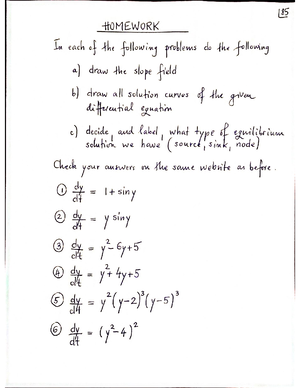 185
HOMEWORK
In each of the following problems do the following
a) draw the slope field
b) draw all solution curves of the given
differential equation
c) decide, and label, what type of equilibrium
solution we have (source, sink, node)
Check your answers on the same website as before.
① dy/dt = 1 + sin y
② dy/dt = y sin y
③ dy/dt = y² - 6y + 5
④ dy/dt = y² + 4y + 5
⑤ dy/dt = y² (y-2)³ (y-5)³
⑥ dy/dt = (y² - 4)²